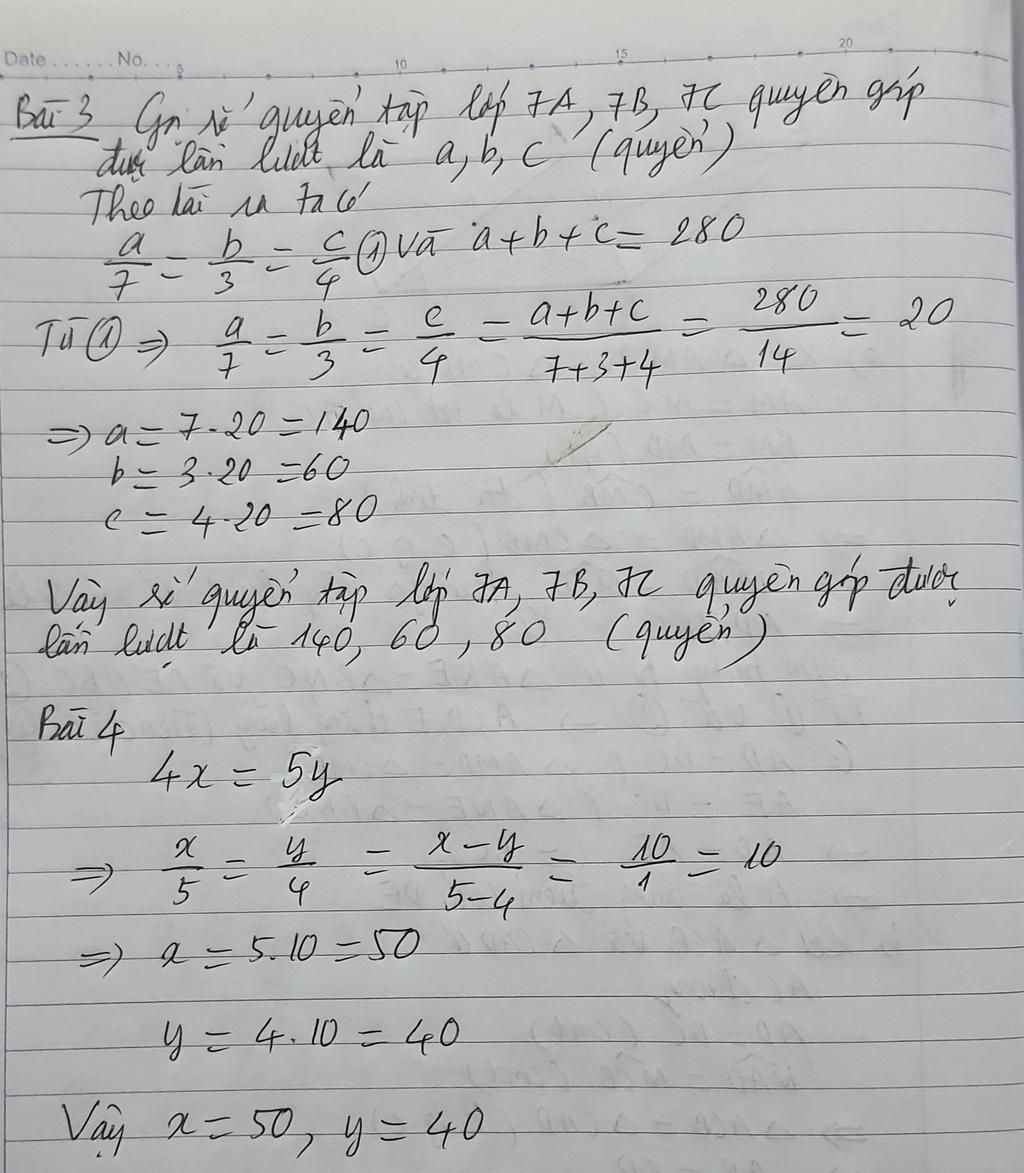 Date ...... No. ... 5 10 15 20
Bài 3 Gọi số quyển tập lớp 7A, 7B, 7C quyên góp
được lần lượt là a, b, c (quyển)
Theo bài ra ta có
a/7 = b/3 = c/4 ① và a+b+c = 280
Từ ① => a/7 = b/3 = c/4 = (a+b+c)/(7+3+4) = 280/14 = 20
=> a = 7.20 = 140
b = 3.20 = 60
c = 4.20 = 80
Vậy số quyển tập lớp 7A, 7B, 7C quyên góp được
lần lượt là 140, 60, 80 (quyển)
Bài 4
4x = 5y
=> x/5 = y/4 = (x-y)/(5-4) = 10/1 = 10
=> x = 5.10 = 50
y = 4.10 = 40
Vậy x = 50, y = 40